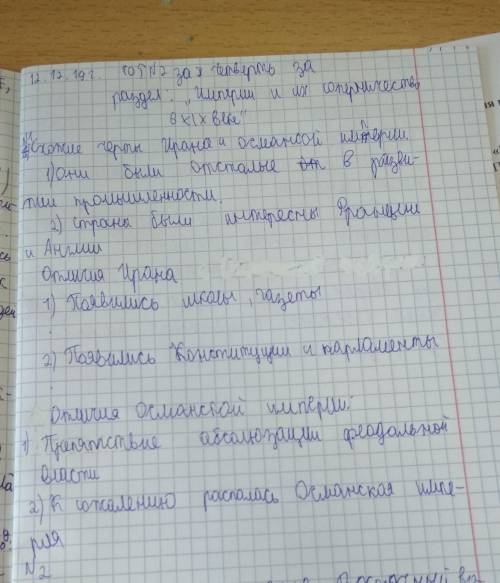 12.12.19г. СОР№2 за 2 четверть за
раздел: „Империи и их соперничество
в XIX веке"
Схожие черты Ирана и османсой империи.
1) Они были отсталые в разви-
тии промышленности.
2) Страны были интересны Франции
и Англии
Отличия Ирана
1) Появились школы, газеты
2) Появились Конституции и парламенты
Отличия Османской империи:
1) Препятствие абсолюзации феодальной
власти
2) К сожалению распалась Османская импе-
рия
№2